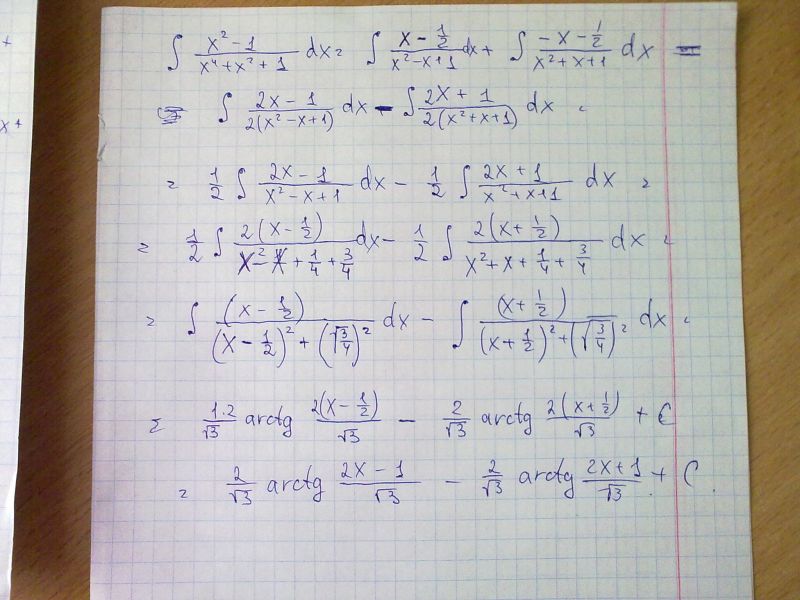 ∫ (x² - 1)/(x⁴ + x² + 1) dx = ∫ (x - 1/2)/(x² - x + 1) dx + ∫ (-x - 1/2)/(x² + x + 1) dx =
= ∫ (2x - 1)/(2(x² - x + 1)) dx - ∫ (2x + 1)/(2(x² + x + 1)) dx =
= 1/2 ∫ (2x - 1)/(x² - x + 1) dx - 1/2 ∫ (2x + 1)/(x² + x + 1) dx =
= 1/2 ∫ 2(x - 1/2)/(x² - x + 1/4 + 3/4) dx - 1/2 ∫ 2(x + 1/2)/(x² + x + 1/4 + 3/4) dx =
= ∫ (x - 1/2)/((x - 1/2)² + (√(3/4))²) dx - ∫ (x + 1/2)/((x + 1/2)² + (√(3/4))²) dx =
= 1·2/√3 arctg 2(x - 1/2)/√3 - 2/√3 arctg 2(x + 1/2)/√3 + C
= 2/√3 arctg (2x - 1)/√3 - 2/√3 arctg (2x + 1)/√3 + C.
+
x+